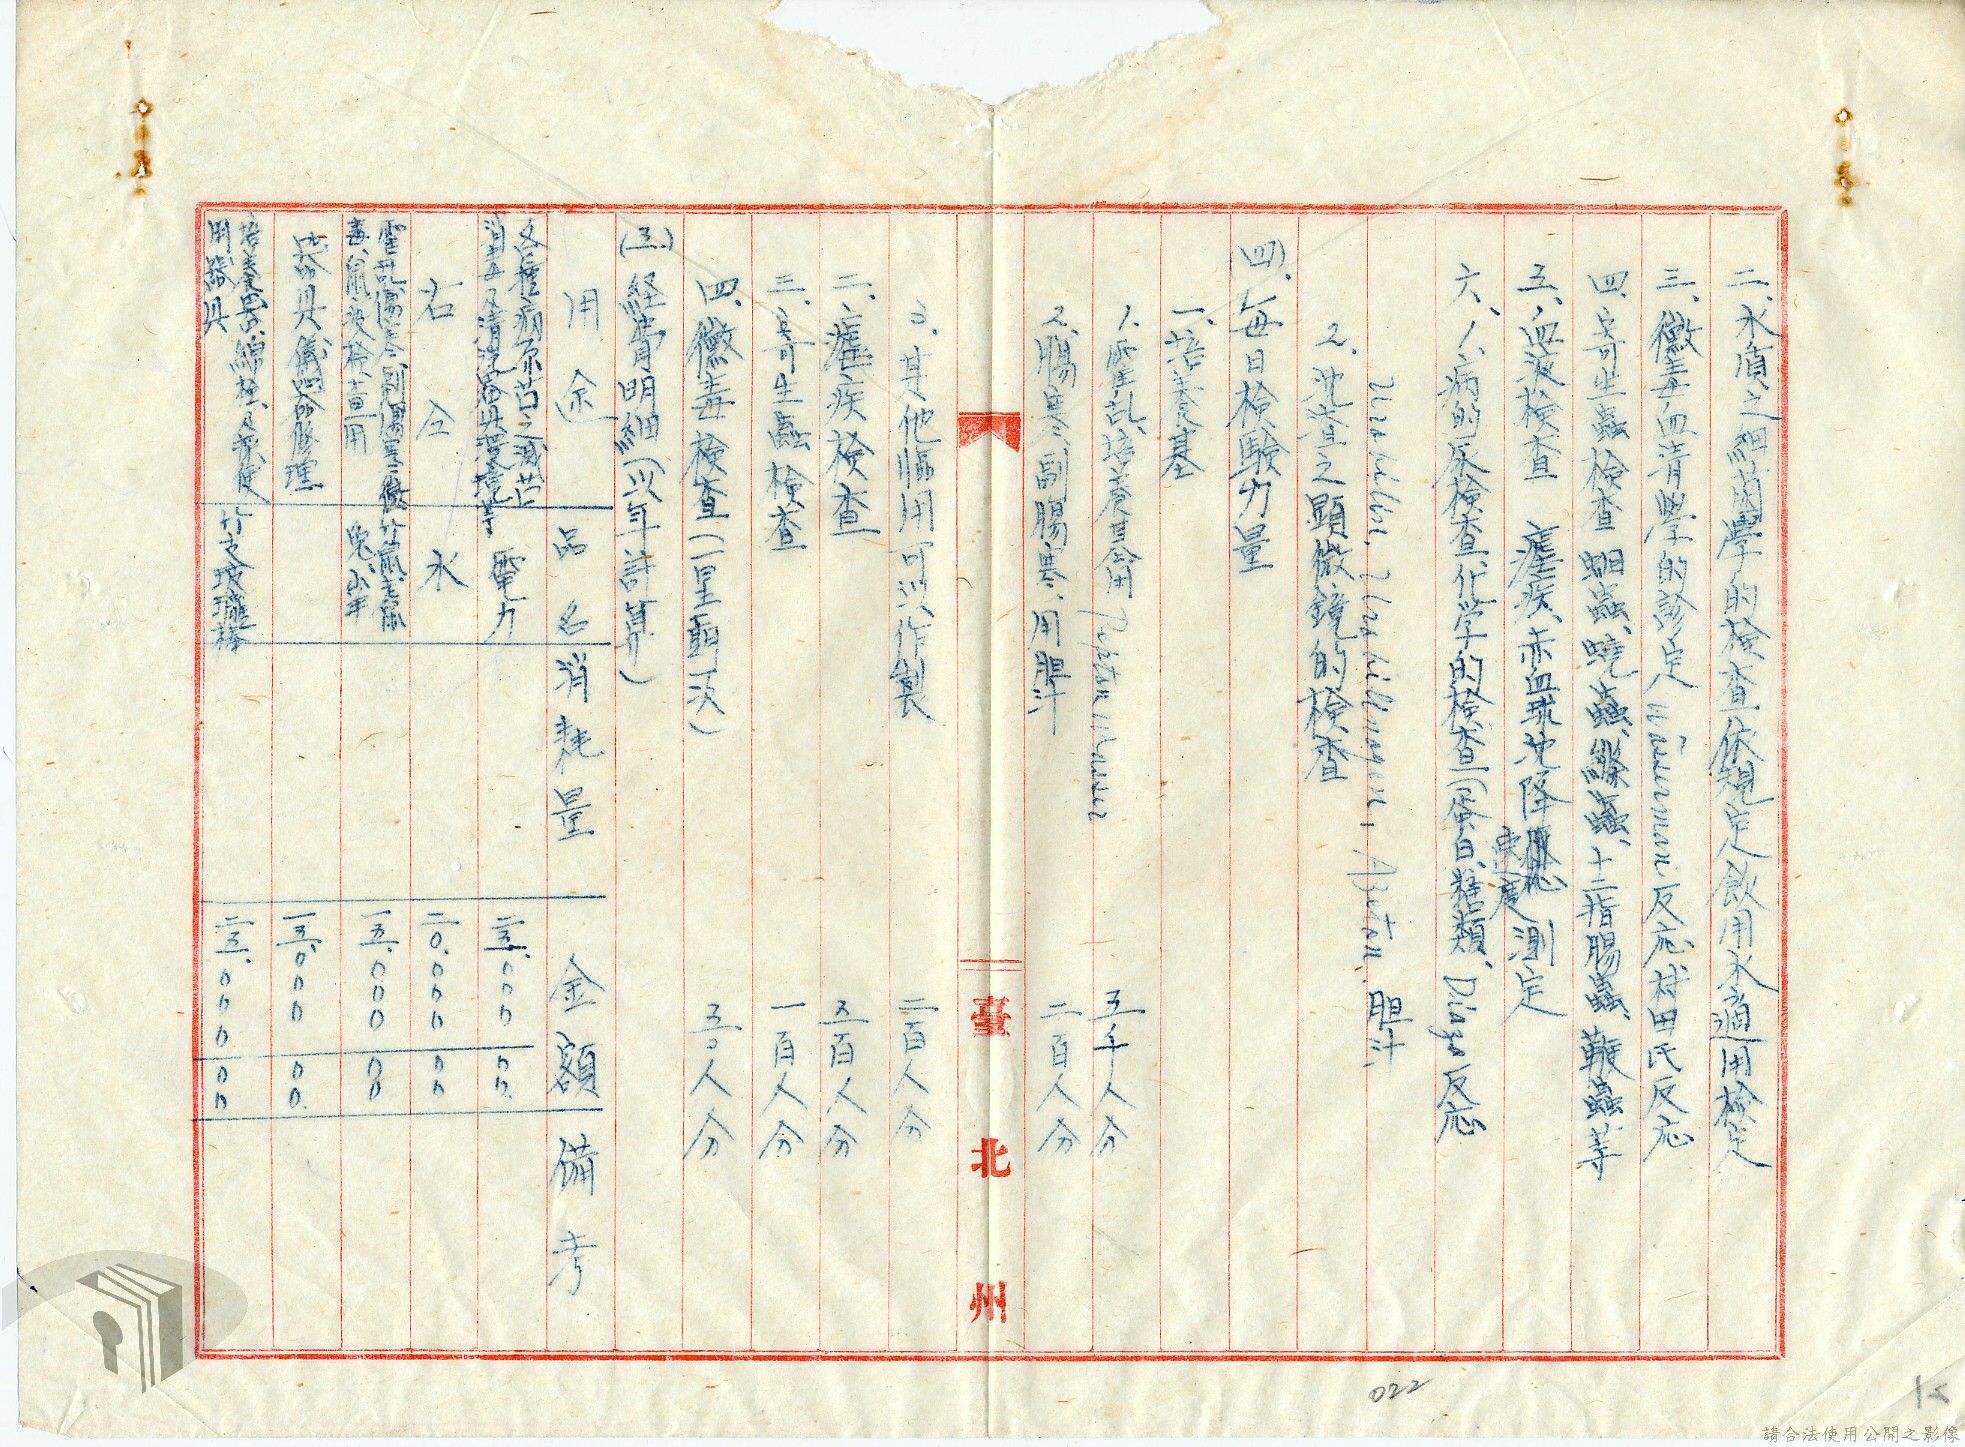 二、水質之細菌學的檢查依規定飲用水適用檢定
三、黴毒血清學的診定 Wassermann 反応 村田氏反応
四、寄生蟲檢查 蛔蟲、蟯蟲、縧蟲、十二指腸蟲、鞭蟲等
五、血液檢查 瘧疾、赤血球沈降速度測定
六、1、病的尿檢查、化学的檢查(蛋白、糖類、Diazo反応
Urobilin, Urobilinogen, Azeton, 胆汁
2、沈渣之顕微鏡的檢查
(四)、毎日檢験力量
一、培養基
1、霍乱培養基用 Pepton Wasser 五千人分
2、腸寒、副腸寒、用胆汁 二百人分
3、其他臨用可以作製 二百人分
二、瘧疾檢查 五百人分
三、寄生蟲檢查 一百人分
四、黴毒檢查(一星期一次) 五〇人分
(五)経費明細(以年計算)
用途 品名 消耗量 金額 備考
各種病原苔之滅苔消毒及清潔器具燙燒等 電力 二五、〇〇〇 〇〇
右仝 水 二〇、〇〇〇 〇〇
霍乱、傷寒、副傷寒、黴毒、鼠疫檢查用 竹鼠、天竺鼠、兎、山羊 一五、〇〇〇 〇〇
器具儀器修理 一五、〇〇〇 〇〇
培養器、綿栓及檢便用器具 竹支玻璃棒 二五、〇〇〇 〇〇
臺北州
022
請合法使用公開之影像